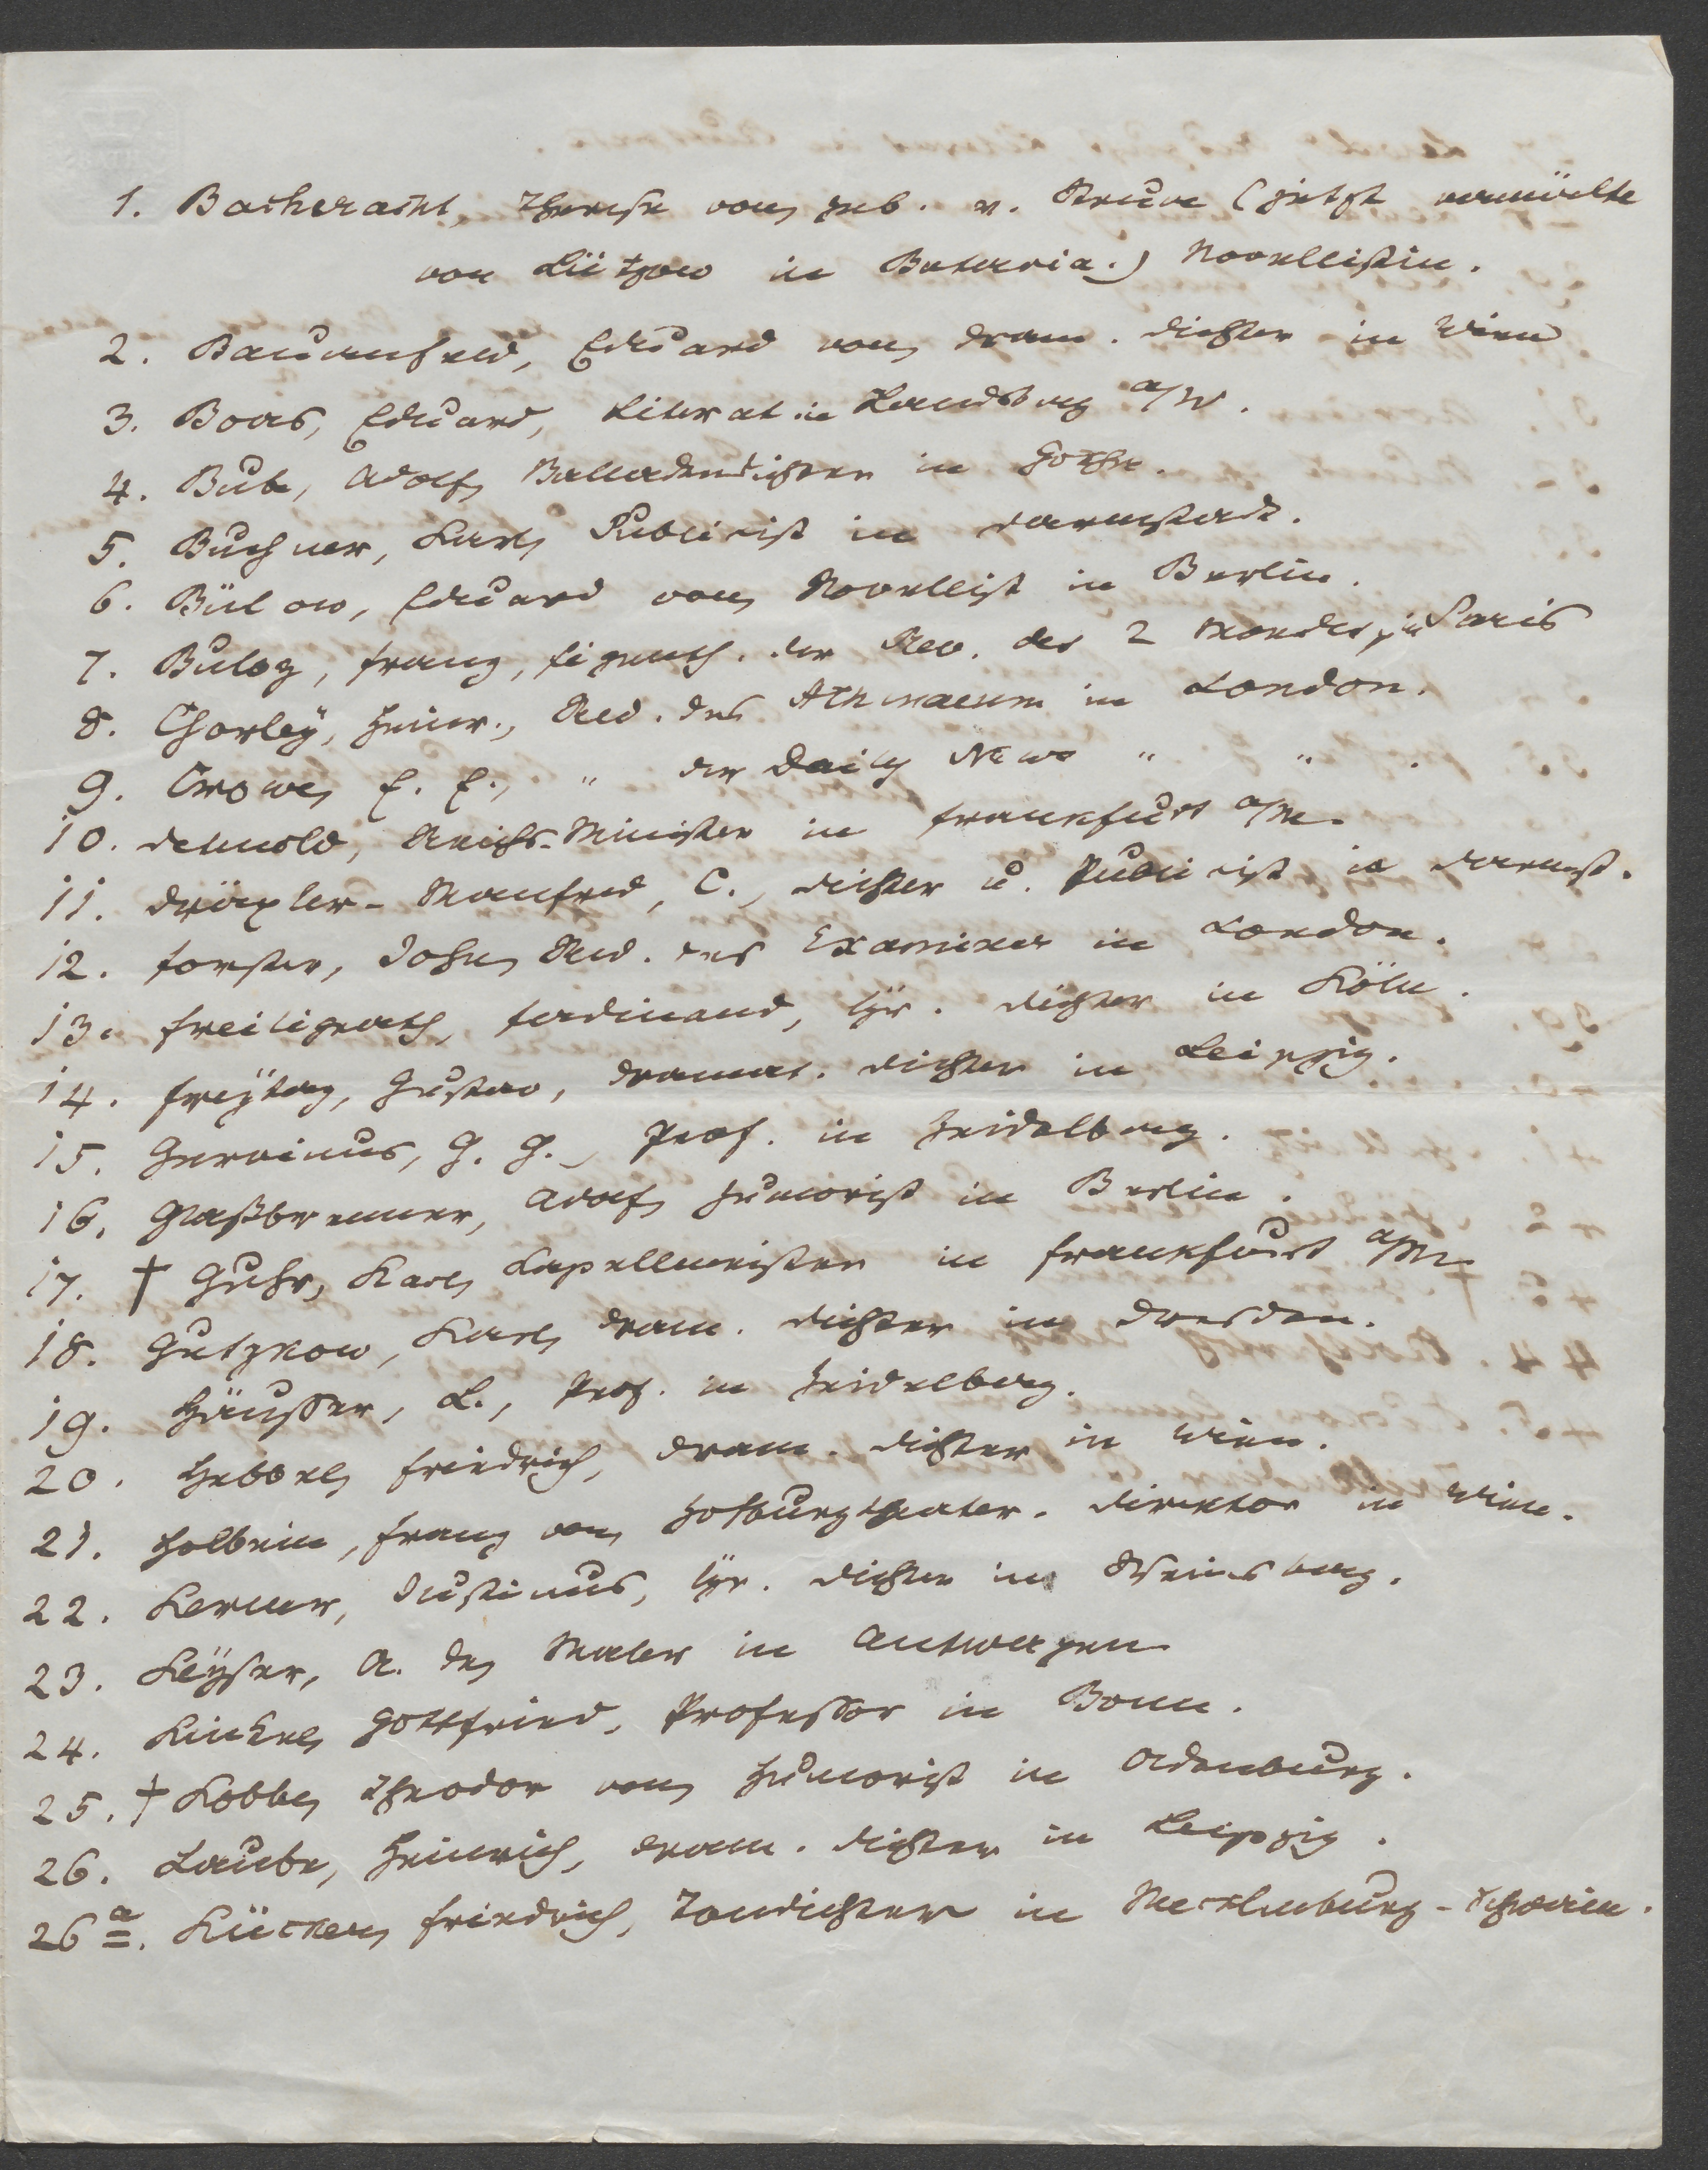 1. Bacheracht, Therese von, geb. v. Struve (jetzt vermählte
von Lützow in Batavia.) Novellistin.
2. Bauernfeld, Eduard von, dram. Dichter in Wien
3. Boas, Eduard, Literat in Landsberg a/W.
4. Bube, Adolf, Balladendichter in Gotha.
5. Buchner, Karl, Publicist in Darmstadt.
6. Bülow, Eduard von, Novellist in Berlin.
7. Buloz, Franz, Eigenth. der Rev. des 2 Mondes, in Paris
8. Chorley, Heinr., Red. des Athenaeum in London.
9. Crowe, E. E., " der Daily News " " .
10. Detmold, Reichs-Minister in Frankfurt a/M.
11. Dräxler-Manfred, C., Dichter u. Publicist in Darmst.
12. Forster, John, Red. des Examiner in London.
13. Freiligrath, Ferdinand, lyr. Dichter in Köln.
14. Freytag, Gustav, dramat. Dichter in Leipzig.
15. Gervinus, G. G., Prof. in Heidelberg.
16. Glaßbrenner, Adolf, Humorist in Berlin.
17. † Guhr, Karl, Kapellmeister in Frankfurt a/M.
18. Gutzkow, Karl, dram. Dichter in Dresden.
19. Häusser, L., Prof. in Heidelberg.
20. Hebbel, Friedrich, dram. Dichter in Wien.
21. Holbein, Franz von, Hofburgtheater-Direktor in Wien.
22. Kerner, Justinus, lyr. Dichter in Weinsberg.
23. Keyser, A. de, Maler in Antwerpen
24. Kinkel, Gottfried, Professor in Bonn.
25. † Kobbe, Theodor von, Humorist in Oldenburg.
26. Laube, Heinrich, dram. Dichter in Leipzig.
26a. Kücken, Friedrich, Tondichter in Mecklenburg-Schwerin.